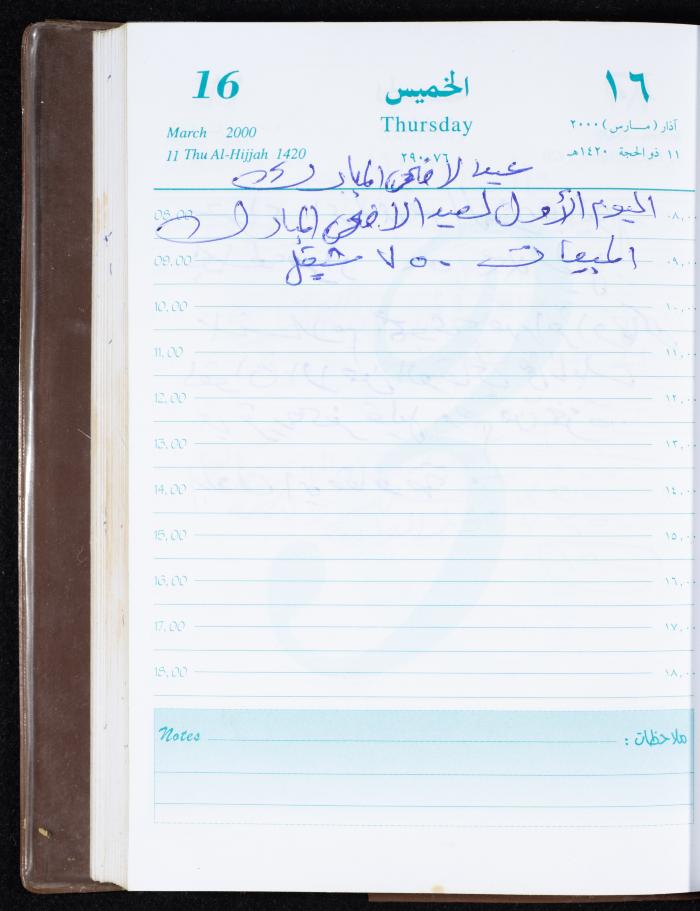 16 الخميس ١٦
Thursday
March 2000 آذار (مارس) ٢٠٠٠
11 Thu Al-Hijjah 1420 ٢٩٠-٧٦ ١١ ذو الحجة ١٤٢٠هـ
عيد الاضحى المبارك
اليوم الأول لعيد الاضحى المبارك
08,00 ٠٨,٠٠
المبيعات ٧٥٠ شيقل
09,00 ٠٩,٠٠
10,00 ١٠,٠٠
11,00 ١١,٠٠
12,00 ١٢,٠٠
13,00 ١٣,٠٠
14,00 ١٤,٠٠
15,00 ١٥,٠٠
16,00 ١٦,٠٠
17,00 ١٧,٠٠
18,00 ١٨,٠٠
Notes ملاحظات :